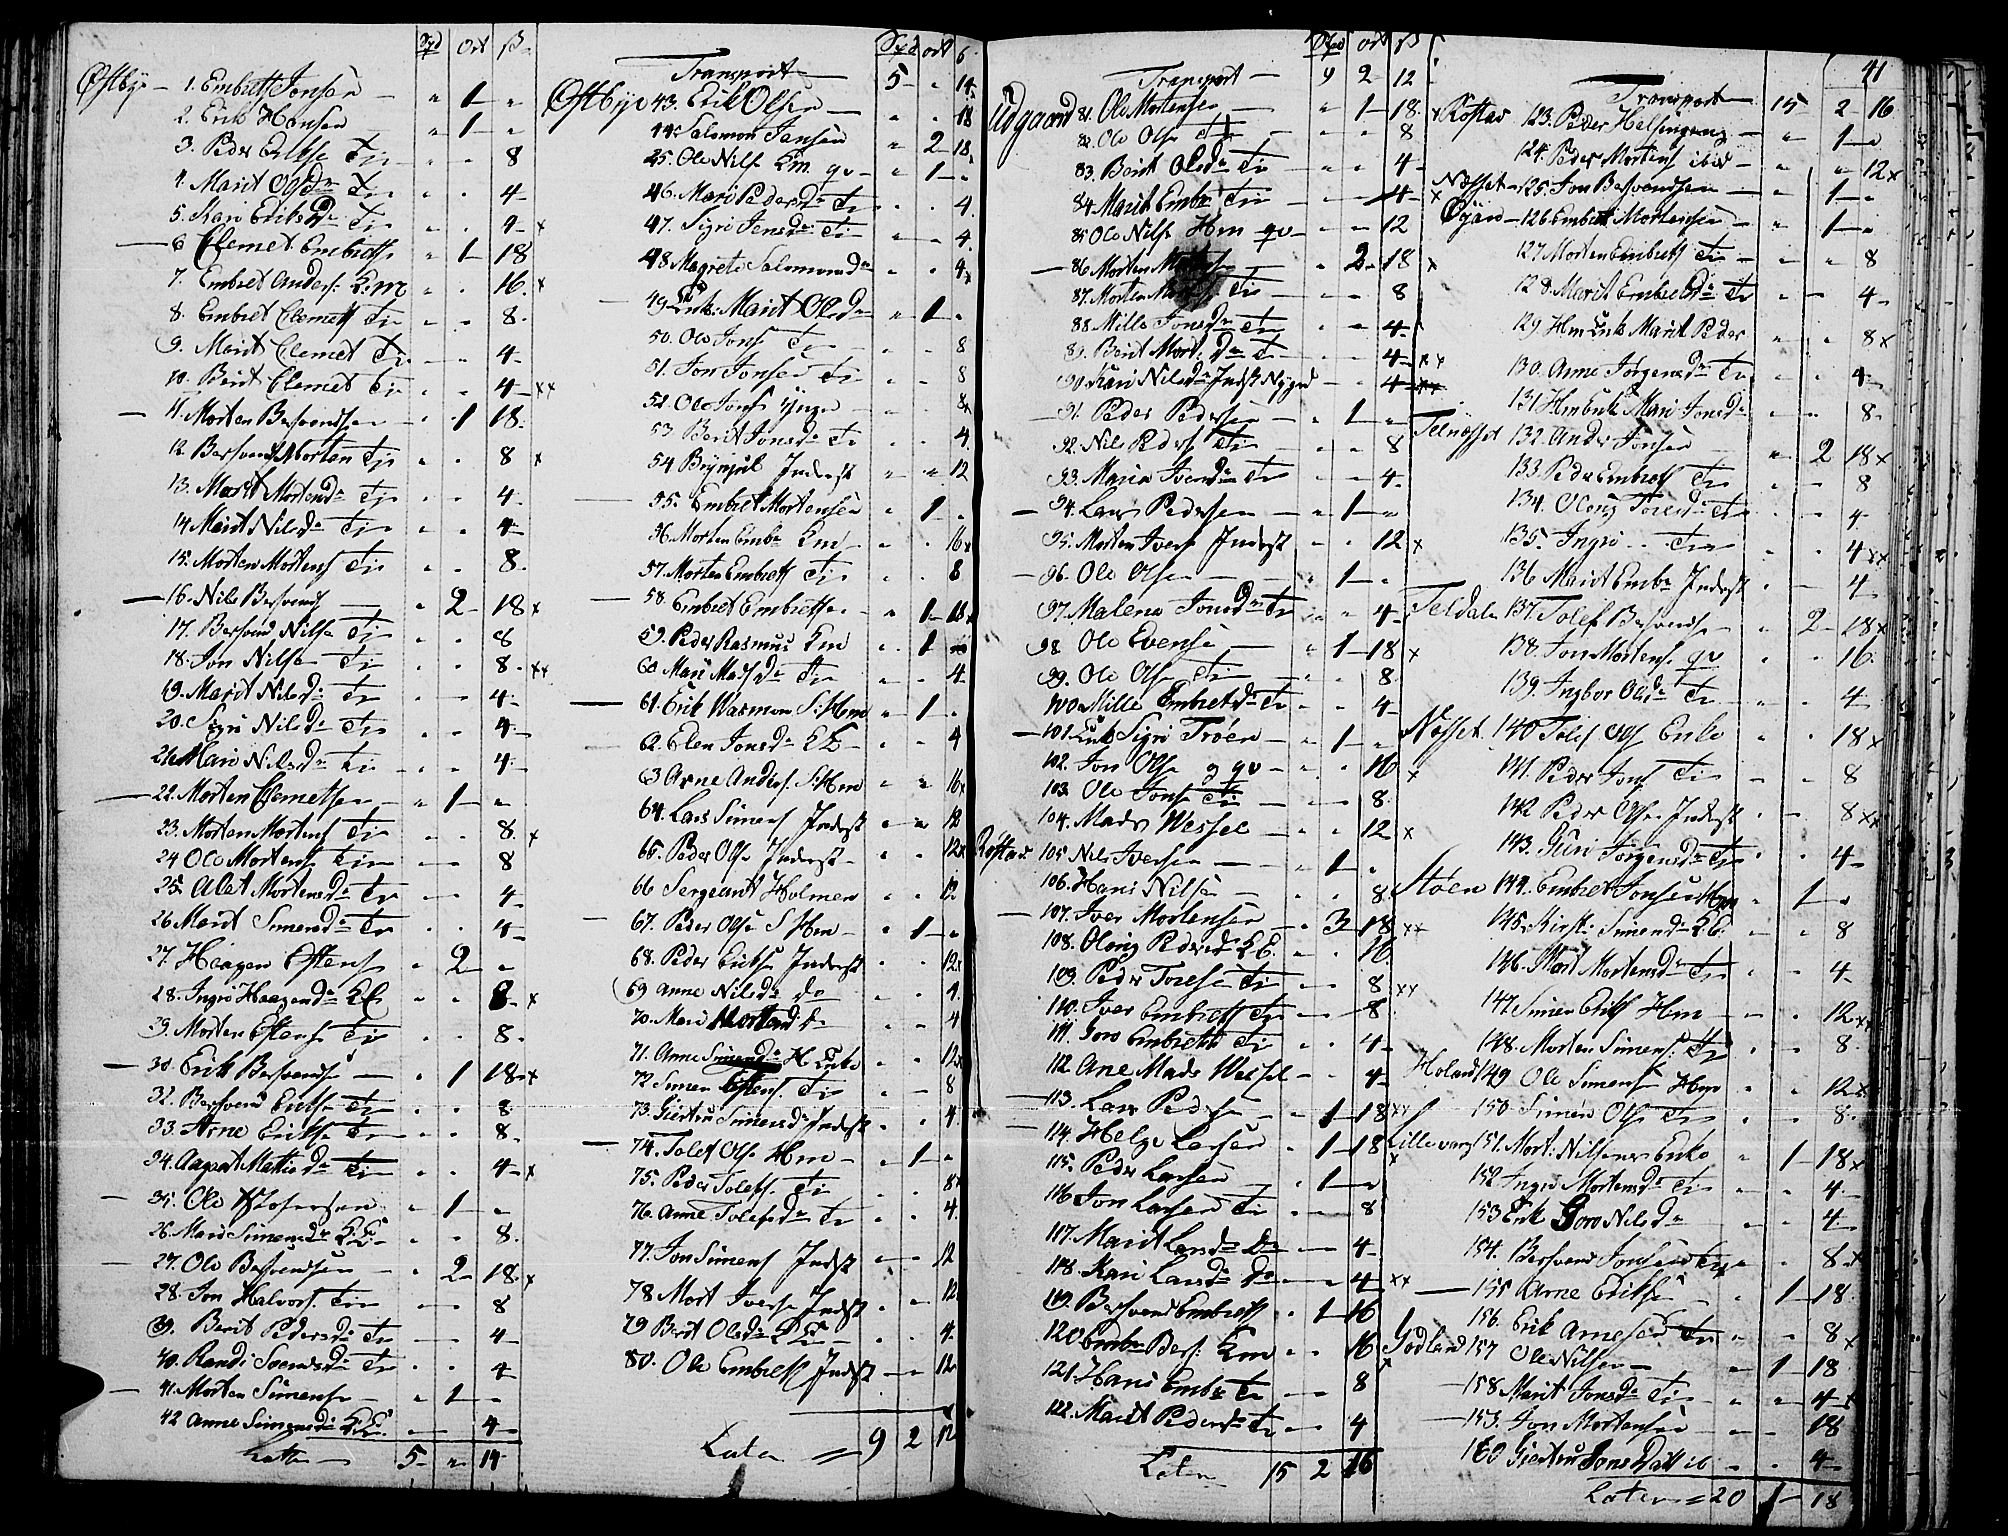 Spd Ort ß
Østbye - 1. Embrett Jonsen - " 1 - "
2. Erik Hansen " 1 - "
3. Peder Erikse Ti - - 8
4. Marit Olsdr Ti - - 4 -
5. Kari Eriksdr Ti - - 4 - x
6 Clemet Embretts " 1 - 18
7. Embret Anders: K:m " - 16. x
8. Embret Clemetts Ti - - 8.
9. Marit Clemet Ti - - 4
10. Berit Clemet Ti - - 4 - xx
11. Morten Bersvendsen - " 1 18.
12 Bersvend Morten Ti - - 8 x
13. Marit Mortensdr Ti - - 4.
14 Marit Nilsdr Ti - - 4 -
15. Morten Mortens Ti - - 8.
16. Nils Bersvends - " 2 - 18 x
17. Bersvend Nilse Ti - - 8
18. Jon Nilsen Ti - - 8. xx
19. Marit Nilsdr Ti - - 4 -
20. Sigri Nilsdr Ti - - 4 -
21. Mari Nilsdr Ti - - 4 -
22. Morten Clemetsen - " 1 - "
23. Morten Mortens Ti - - 8. x
24 Ole Mortens Ti - - 8
25. Alet Mortensdr Ti - - 4
26 Marit Simensdr Ti - - 4 -
27. Haagen Estens " 2 - "
28. Ingri Haagensdr K E " - 8 - x
39. Morten Estens Ti - - 8.
30. Erik Bersvendse - " 1 18. x
32. Bersvend Erikse Ti - - 8.
33. Arne Erikse Ti - - 8.
34. Aagaat Mattisdr Ti - - 4 - x
35. Ole Kstofersen " 1 - "
26. Mari Simensdr K.E. - - 8.
27. Ole Bersvendsen - " 2 - 18. x
28. Jon Halvors. Ti - - 8
39. Berit Pedersdr Ti - - 4 -
40. Randi Svendsdr Ti - - 4
41. Morten Simense - " 1 -
42 Anne Simensdr K.E. - - 4 -
Later - 5 - " 14
Spd ort ß
Transport 5 " 14.
Østbye 43. Erik Olsen - " - 18
44. Salomon Jensen " 2 - 18.
45. Ole Nils Km qv - " 1 - "
46. Mari Pedersdr Ti - - 4.
47. Sigri Jensdr Ti - - 4.
48. Magrete Salomonsdr - - 4 x
49 Enke Marit Olsdr " 1 - "
50. Ole Jons Ti - - 8
51. Jon Jonsen Ti - - 8
52. Ole Jons ÿnge - - 8 x
53. Berit Jonsdr Ti - - 4.
54 Brÿnjul Inderst " " 12
55. Embret Mortensen " 1 - "
56. Morten Embr Km - " - 16 x
57. Morten Embrett Ti - - 8
58. Embret Embrettse - " 1 - 18 x
59. Peder Rasmus Km " 1
60 Mari Madsdr Ti - - 4
61. Erik Wasmon S:Hm " 1 - "
62. Elen Jonsdr K E - - - 4
63 Arne Anders. S:Hm " " 16 x
64. Lars Simens Inderst " " 12
65. Peder Olse Inderst - " - 12 x
66 Sergeant Holmen " " 12
67. Peder Olse S Hm - " 1 - "
68. Peder Erikse Inderst - - 12 x
69 Anne Nilsdr do - - 4.
70. Mari Mortensdr do - - 4
71. Anne Simensdr H Enke - - 12 x
72 Simen Estens Ti - - 8
73. Giertru Simensdr Inderst - - 4.
74. Tolef Olse Hm - " 1 - "
75. Peder Tolefs. Ti - - 8 x
76. Anne Tolefsdr Ti - - 4.
77. Jon Simens Indst - - 12
78 Mort Iverse Indst - - 12
79 Berit Olsdr K E - - 4.
80. Ole Embretts Indst - - 12
Later = 9 2 12
Spd ort ß
Transport - 9 2 - 12
Udgaard 81. Ole Mortensen - " 1 - 18. x
82. Ole Olse Ti - - 8
83. Berit Olsdr Ti - - 4 -
84 Marit Embr Ti - - 4 - x
85 Ole Nils Hm qv - - 12
86 Morten - " 2 - 18 x
87. Morten Ti - - 8
88. Mille Jonsdr Ti - - 4 -
89. Berit Mort: dr Ti - - 4 - xx
90. Kari Nilsdr Indst Nygrd - - 4 - xx
91. Peder Pedersen - " 1 - "
92. Nils Peders Ti - - 8
93. Maria Iversdr Ti - - 4 -
94. Lars Pedersen - " 1 - "
95. Morten Ivers Inderst - - 12 x
96. Ole Olsen - " 1 - "
97. Malena Jonsdr Ti - - 4 -
98. Ole Evense - " 1 - 18 x
99. Ole Olse Ti - - 8.
100. Mille Embretsdr Ti - - 4 -
101. Enke Sigri Trøen - " 1 - "
102. Jon Olse g qv - - 16 x
103. Ole Jonse Ti - - 8.
104. Mads Wessel - - 12 x
Røstad 105 Nils Iversen - " 1 - "
106. Hans Nilsen - - - 8.
107. Iver Mortensen " 3 - 18 xx
108. Olong Pedersdr K E. - - 16
109. Peder Torese Ti - - 8 xx
110. Iver Embrett Ti - - 8.
111. Goro Embrett Ti - - 4 -
112 Ane Mads Wessel - - 4 -
113. Lars Pederse " 1 - 18 xx
114. Helge Larsen - " 1 - 18 x
115. Peder Larsen " 1 - "
116 Jon Larsen Ti - - 8
117. Marit Larsdr do - - 4 -
118. Kari Larsdr do - - 4 - xx
119. Bersvend Embrett " 1 - 16
120. Embr Bers. Km " - 16 x
121. Hans Embr Ti - - 8
122. Marit Pedersdr Ti - - 4
Later 15 2 16
41
Transport 15 - 2 - 16
Røstad 123. Peder Helsingeng - " 1 - "
124. Peder Mortens ibid - " " 12 x
Næsset - 125. Jon Bersvendsen - " 1 - "
Øyan - 126 Embret Mortensen - " 1 - "
127. Morten Embrett Ti - - 8
128. Marit Embretsdr Ti - - 4 -
129. Hm Enke Marit Peder " " 8 x
130. Anne Jørgensdr Ti - - 4 -
131 Hm Enke Mari Jonsdr - - 8.
Telnesset 132. Anders Jonsen " 2 18 x
133. Peder Embrett Ti - - 8
134. Olong Toresdr Ti - - 4
135. Ingri - - Ti - - 4 xx
136 Marit Embr Inderst - - 4
Teldalen 137. Tolef Bersvends - " 2 - 18 x
138. Jon Mortens. qv " " 16.
139. Ingbor Olsdr Ti - - 4
Næsset. 140 Tolef Olse Enke " " 18 x
141. Peder Jons Ti - - 8
142 Peder Olsen Inderst - - 8 xx
143. Guri Jørgensdr Ti - - 4 -
Støen 144. Embret Jonsen Hm " 1 - "
145. Kirsti Simensdr K E. - - 8
146. Marit Mortensdr Ti - - 4
147. Simen Eriks Hm - - 12 xx
148. Morten Simens. Ti - - 8.
Holand 149 Ole Simens Hm " " 12 x
150. Simen Ols Ti - - 8.
Lillevang 151. Mort: Nilsens Enke " 1 - 18 x
152 Ingri Mortensdr Ti - - 4 -
153 Enk Goro Nilsdr - - 4 -
154. Bersvend Jonsen Ti - - 8 x
155 Arne Eriksen - " 1 - 18.
156. Erik Arnesen Ti - - 8 x
Godland 157 Ole Nilsen - " 1 - 18
158 Marit Jonsdr Ti - - 4 - x
159. Jon Mortensen - - 18
160 Giertru Jonsdatt ib - - 4 -
Later = 20 1 - 18